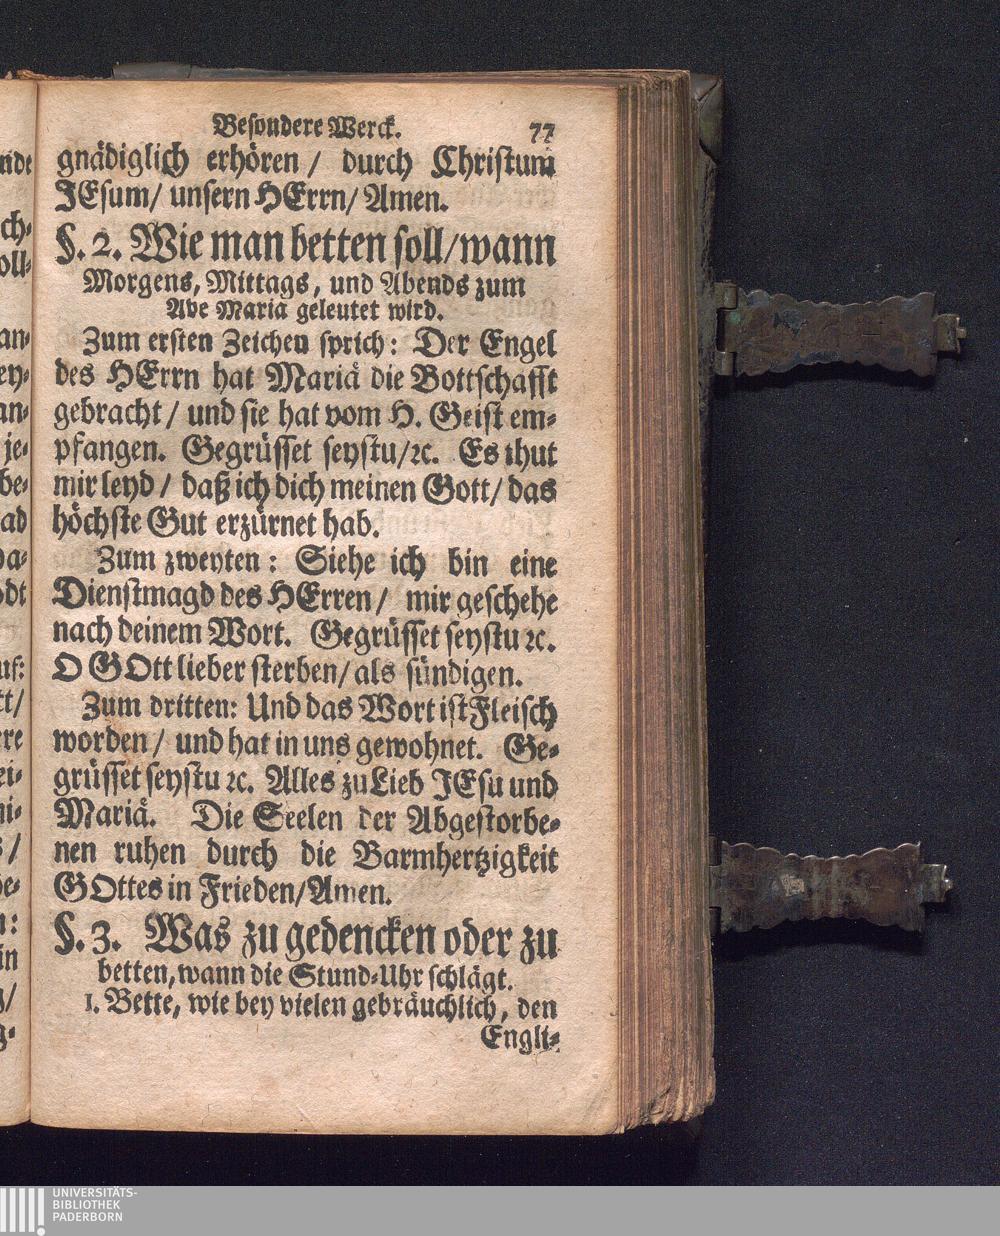 Besondere Werck. 77
gnädiglich erhören / durch Christum
JEsum/ unsern HErrn/ Amen.
§. 2. Wie man betten soll/wann
Morgens, Mittags, und Abends zum
Ave Maria geleutet wird.
Zum ersten Zeichen sprich: Der Engel
des HErrn hat Mariä die Bottschafft
gebracht / und sie hat vom H. Geist em-
pfangen. Gegrüsset seystu/ꝛc. Es thut
mir leyd / daß ich dich meinen Gott/ das
höchste Gut erzürnet hab.
Zum zweyten: Siehe ich bin eine
Dienstmagd des HErren / mir geschehe
nach deinem Wort. Gegrüsset seystu ꝛc.
O GOtt lieber sterben/ als sündigen.
Zum dritten: Und das Wort ist Fleisch
worden / und hat in uns gewohnet. Ge-
grüsset seystu ꝛc. Alles zu Lieb JEsu und
Mariä. Die Seelen der Abgestorbe-
nen ruhen durch die Barmhertzigkeit
GOttes in Frieden/Amen.
§. 3. Was zu gedencken oder zu
betten, wann die Stund-Uhr schlägt.
1. Bette, wie bey vielen gebräuchlich, den
Engli-
UNIVERSITÄTS-
BIBLIOTHEK
PADERBORN